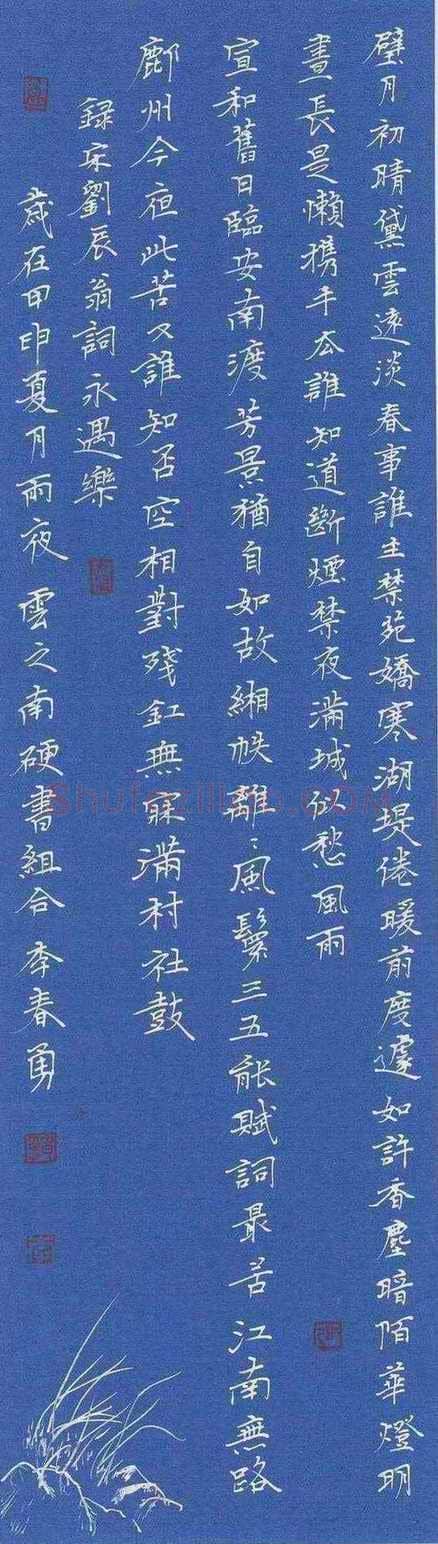 璧月初晴黛雲遠淡春事誰主禁苑嬌寒湖堤倦暖前度遽如許香塵暗陌華燈明
晝長是懶携手去誰知道斷煙禁夜滿城似愁風雨
宣和舊日臨安南渡芳景猶自如故緗帙離〻風鬟三五能賦詞最苦江南無路
鄜州今夜此苦又誰知否空相對殘釭無寐滿村社鼓
録宋劉辰翁詞永遇樂
歲在甲申夏月雨夜 雲之南硬書組合李春勇